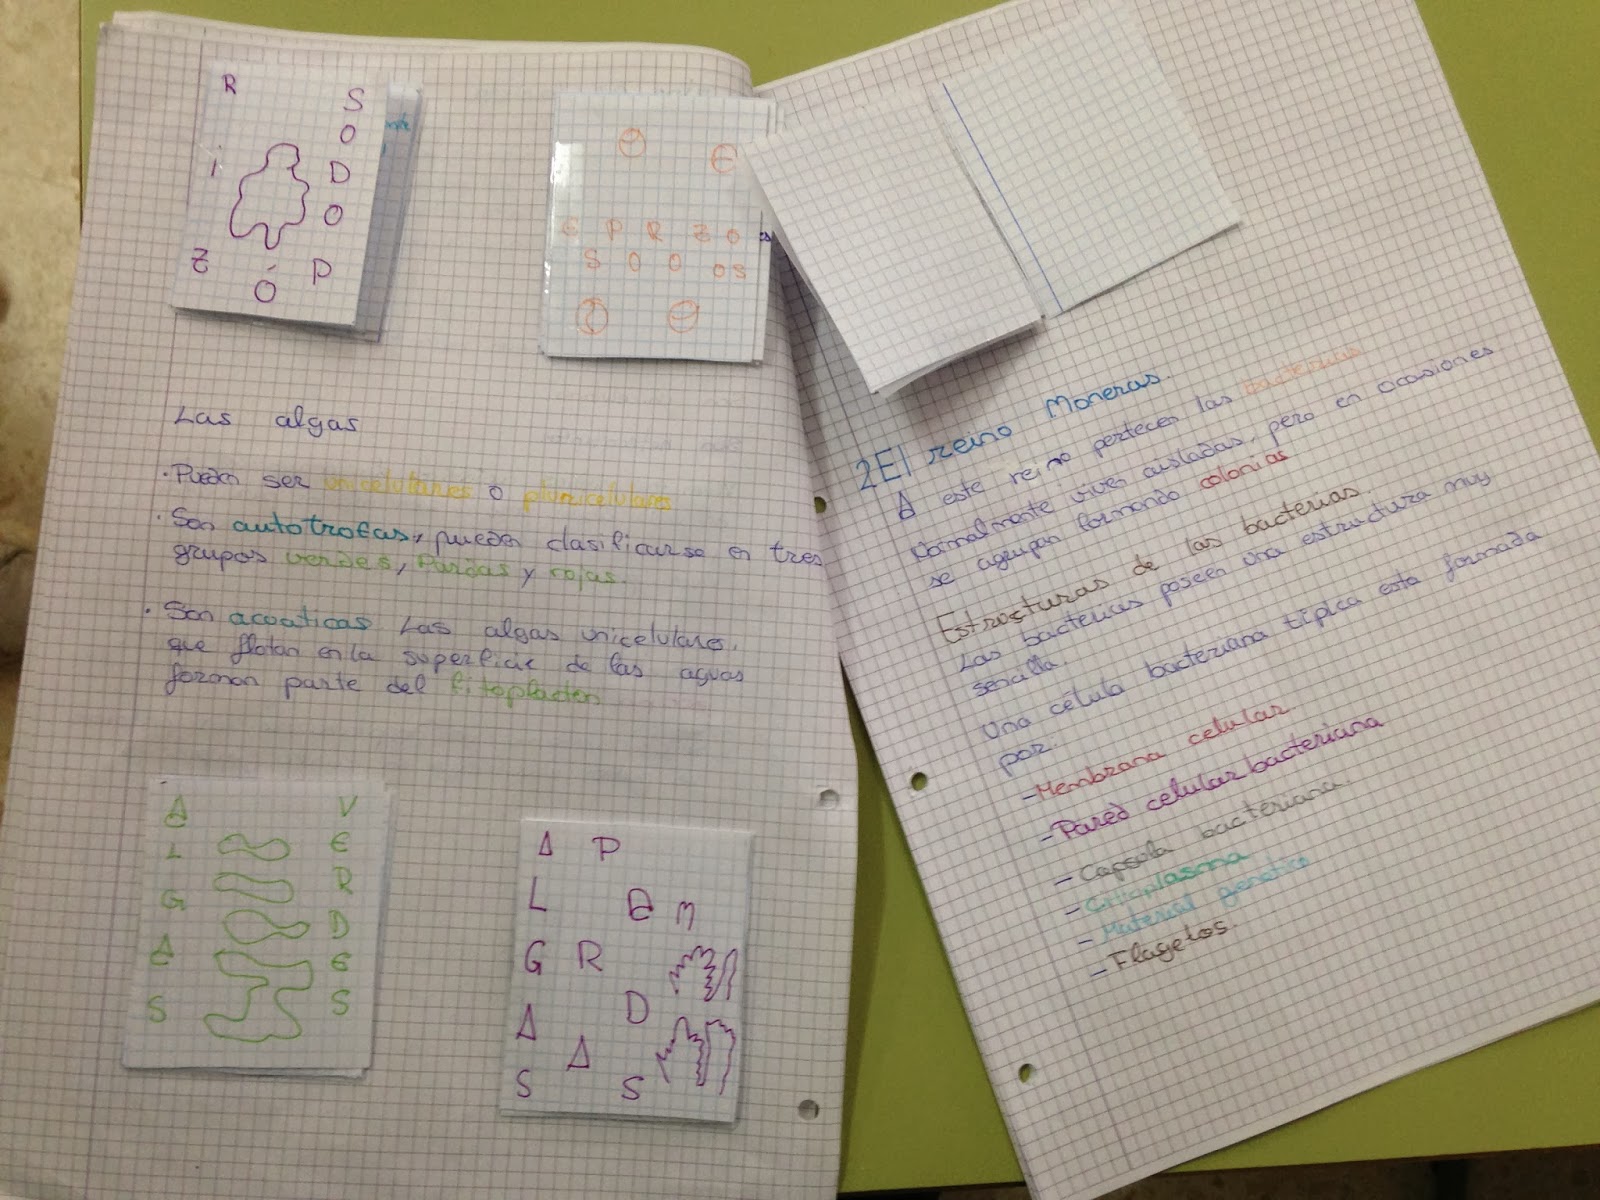 R
i
Z
Ó
P
O
D
O
S
E S P O R O Z O OS
Las algas
· Pueden ser unicelulares o pluricelulares
· Son autotrofas, pueden clasificarse en tres
grupos verdes, Pardas y rojas.
· Son acuaticas Las algas unicelulares,
que flotan en la superficie de las aguas
forman parte del fitoplacten
A
L
G
A
S
V
E
R
D
E
S
A
L
G
A
S
P
A
R
D
A
S
2 El reino Moneras.
A este reino pertecen las bacterias
Normalmente viven aisladas, pero en ocasiones
se agrupan formando colonias
Estructuras de las bacterias.
Las bacterias poseen una estructura muy
sencilla.
Una célula bacteriana típica esta formada
por:
- Membrana celular.
- Pared celular bacteriana
- Capsola bacteriana
- Citioplasma
- Material genetico
- Flagelos.